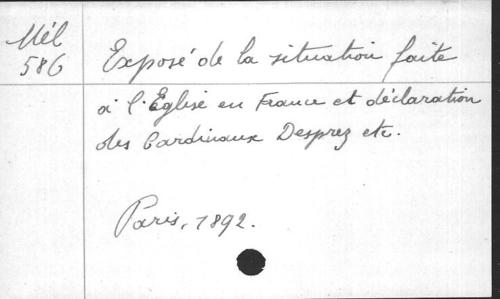 Mél
586
Exposé de la situation faite
à l'Église en France et déclaration
des Cardinaux Desprez etc.
Paris, 1892.